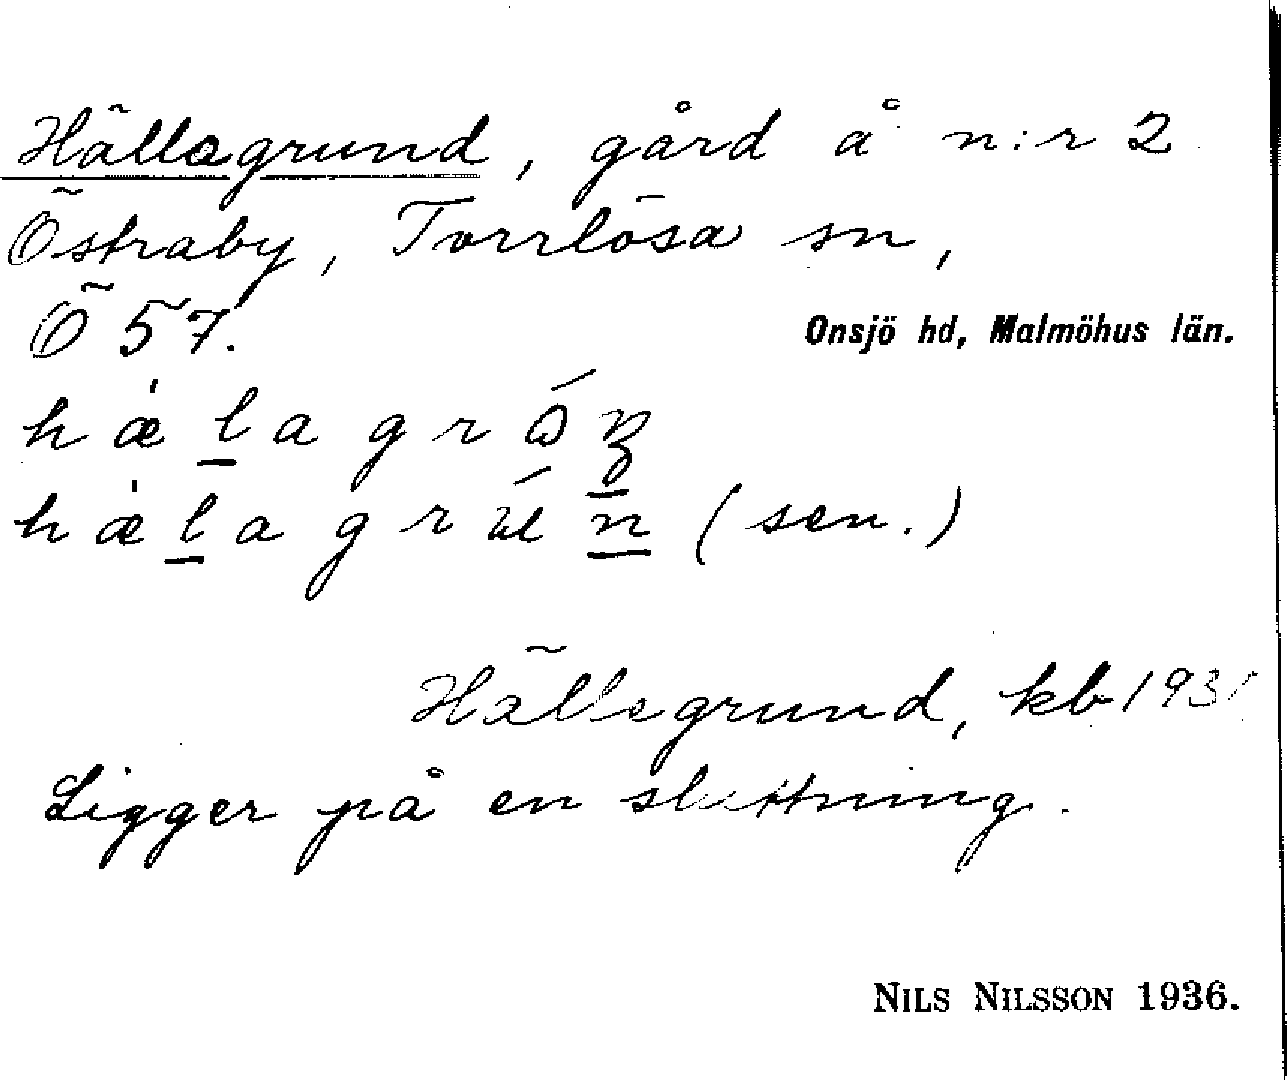 Hällsgrund, gård å n:r 2
Östraby, Torrlösa sn,
Ö 57. Onsjö hd, Malmöhus län.
(sen.)
Hällsgrund, kb 193
Ligger på en sluttning.
NILS NILSSON 1936.